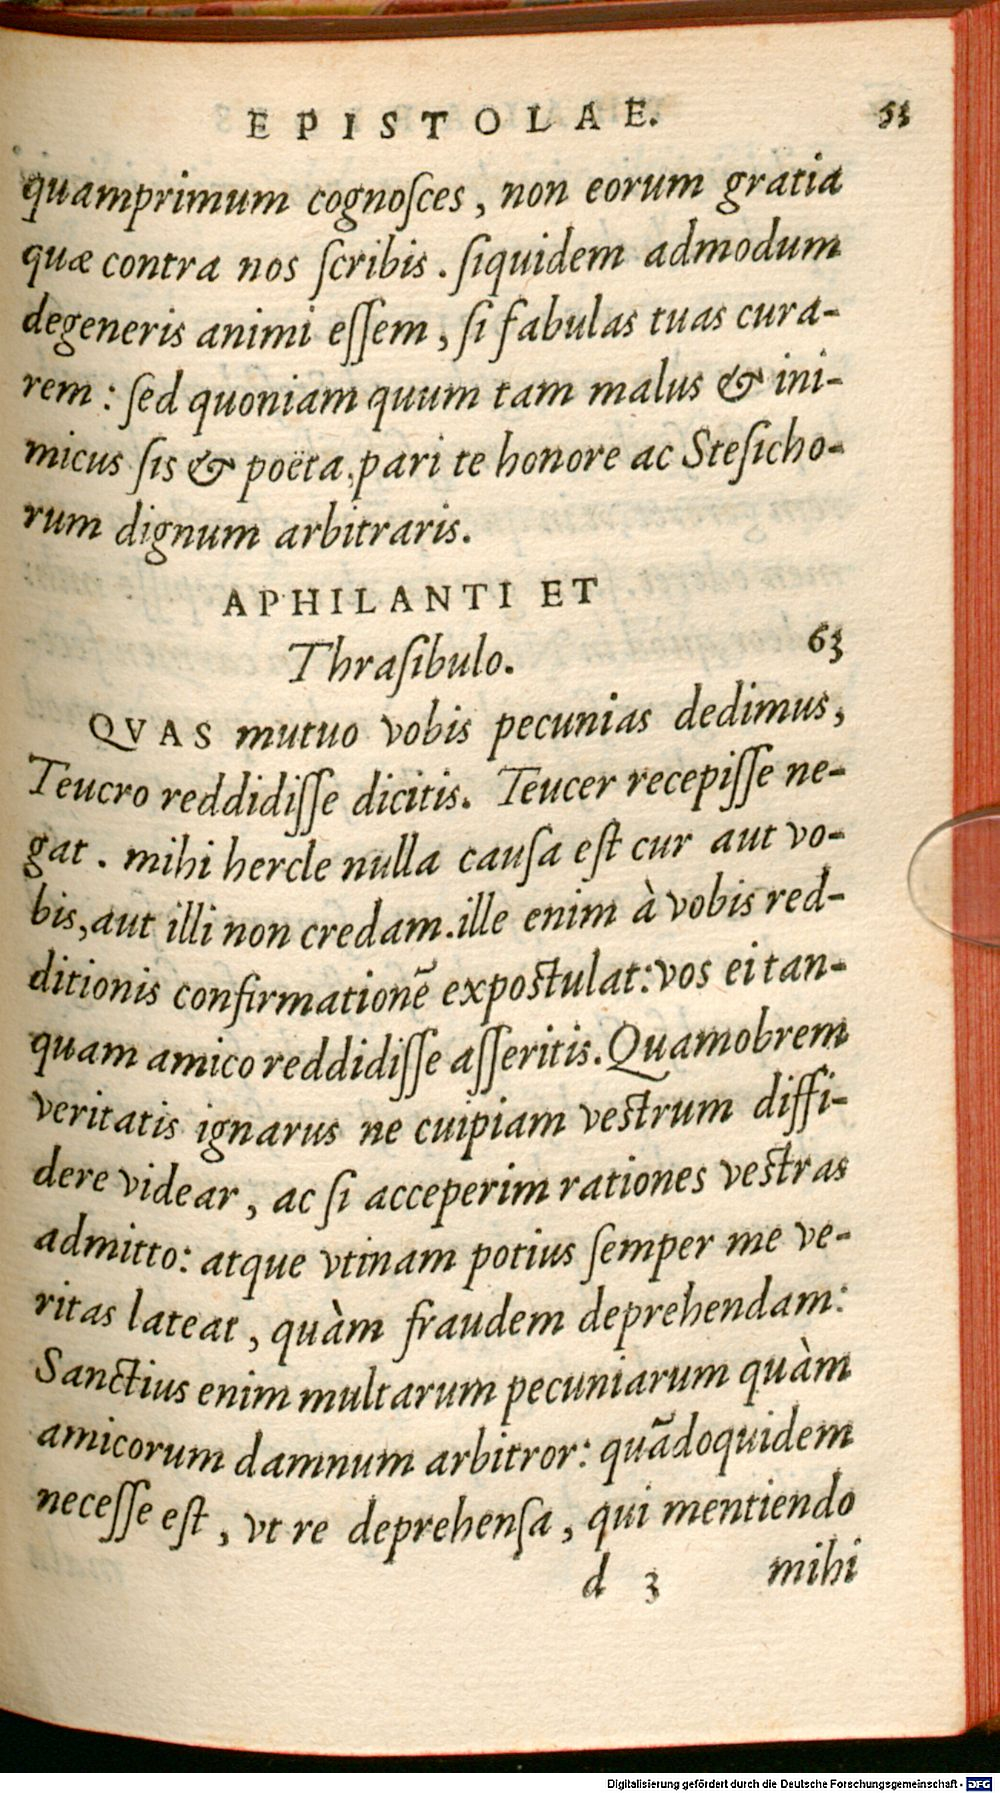 EPISTOLAE. 53
quamprimum cognoſces, non eorum gratia
quæ contra nos ſcribis. ſiquidem admodum
degeneris animi eſſem, ſi fabulas tuas cura-
rem: ſed quoniam quum tam malus & ini-
micus ſis & poëta, pari te honore ac Steſicho-
rum dignum arbitraris.
APHILANTI ET
Thraſibulo. 63
QVAS mutuo vobis pecunias dedimus,
Teucro reddidiſſe dicitis. Teucer recepiſſe ne-
gat. mihi hercle nulla cauſa eſt cur aut vo-
bis, aut illi non credam. ille enim à vobis red-
ditionis confirmationē expoſtulat: vos ei tan-
quam amico reddidiſſe aſſeritis. Quamobrem
veritatis ignarus ne cuipiam veſtrum diffi-
dere videar, ac ſi acceperim rationes veſtras
admitto: atque vtinam potius ſemper me ve-
ritas lateat, quàm fraudem deprehendam:
Sanctius enim multarum pecuniarum quàm
amicorum damnum arbitror: quādoquidem
neceſſe eſt, vt re deprehenſa, qui mentiendo
d 3 mihi
Digitalisierung gefördert durch die Deutsche Forschungsgemeinschaft - DFG